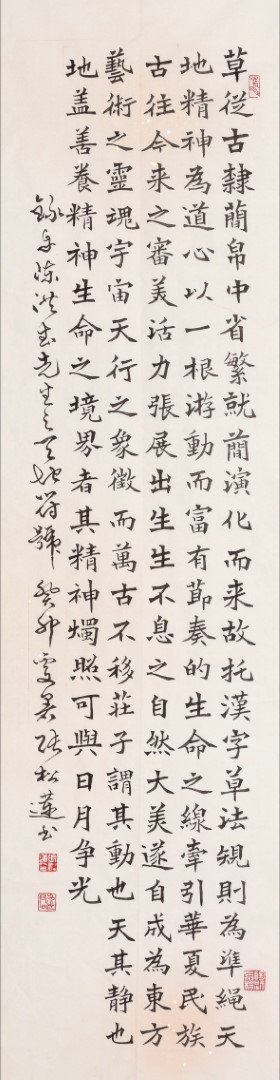 草從古隸蕳帛中省繁就蕳演化而来故托漢字草法規則為準繩天
地精神為道心以一根游動而富有節奏的生命之線牽引華夏民族
古往今来之審美活力張展出生生不息之自然大美遂自成為東方
藝術之靈魂宇宙天行之象徵而萬古不移莊子謂其動也天其静也
地盖善養精神生命之境界者其精神燭照可與日月争光
錄自陳洪武先生之天地符號 癸卯 張松蓮书